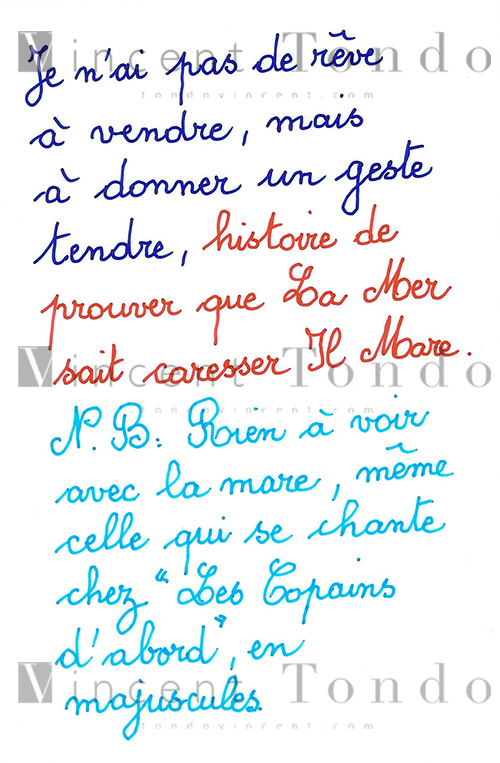 Vincent Tondo
tondovincent.com
Je n'ai pas de rêve
à vendre, mais
à donner un geste
tendre, histoire de
prouver que La Mer
sait caresser Il Mare.
Vincent Tondo
tondovincent.com
N.B: Rien à voir
avec la mare, même
celle qui se chante
chez "Les Copains
d'abord", en
majuscules.
Vincent Tondo
tondovincent.com